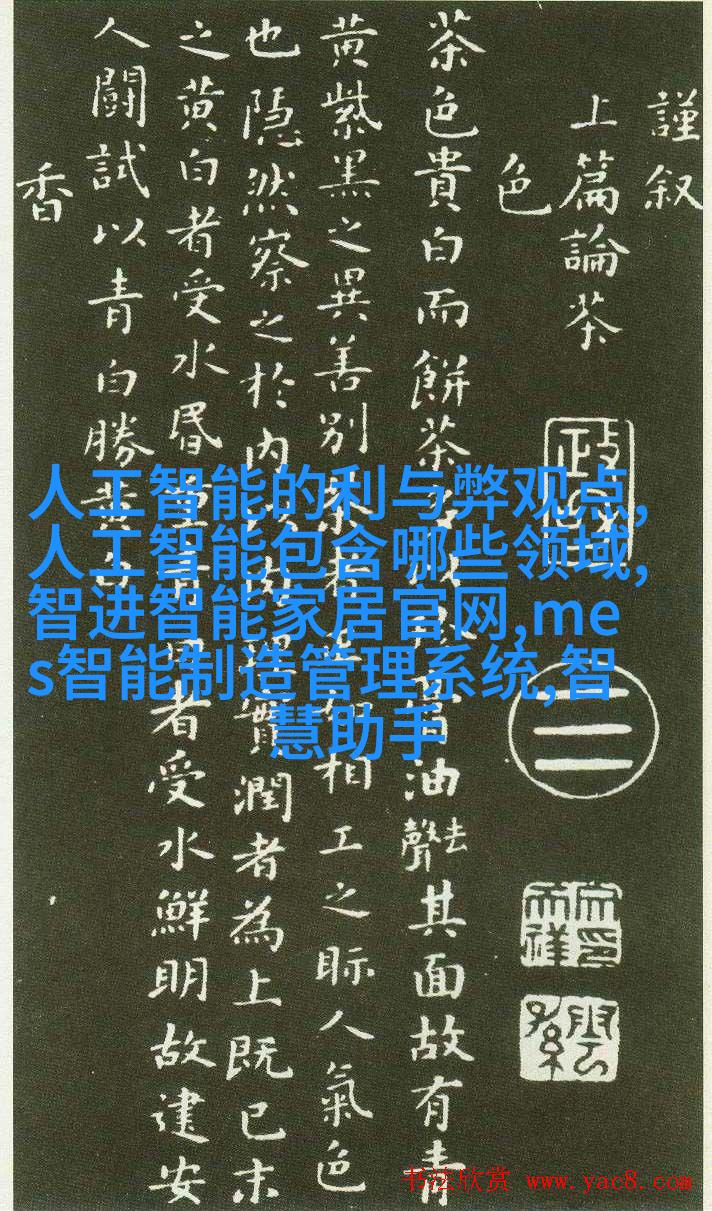 謹叙
上篇論茶
色
茶色貴白而餅茶膏油去聲其面故有青
黄紫黑之異善別茶者相工之眎人氣色
也隱然察之於内理實潤者為上既已末
之黄白者受水昬重青白者受水鮮明故建安
人闘試以青白勝黄白
香
二
人工智能的利与弊观点,
人工智能包含哪些领域,
智进智能家居官网,me
s智能制造管理系统,智
慧助手
书法欣赏 www.yac8.com